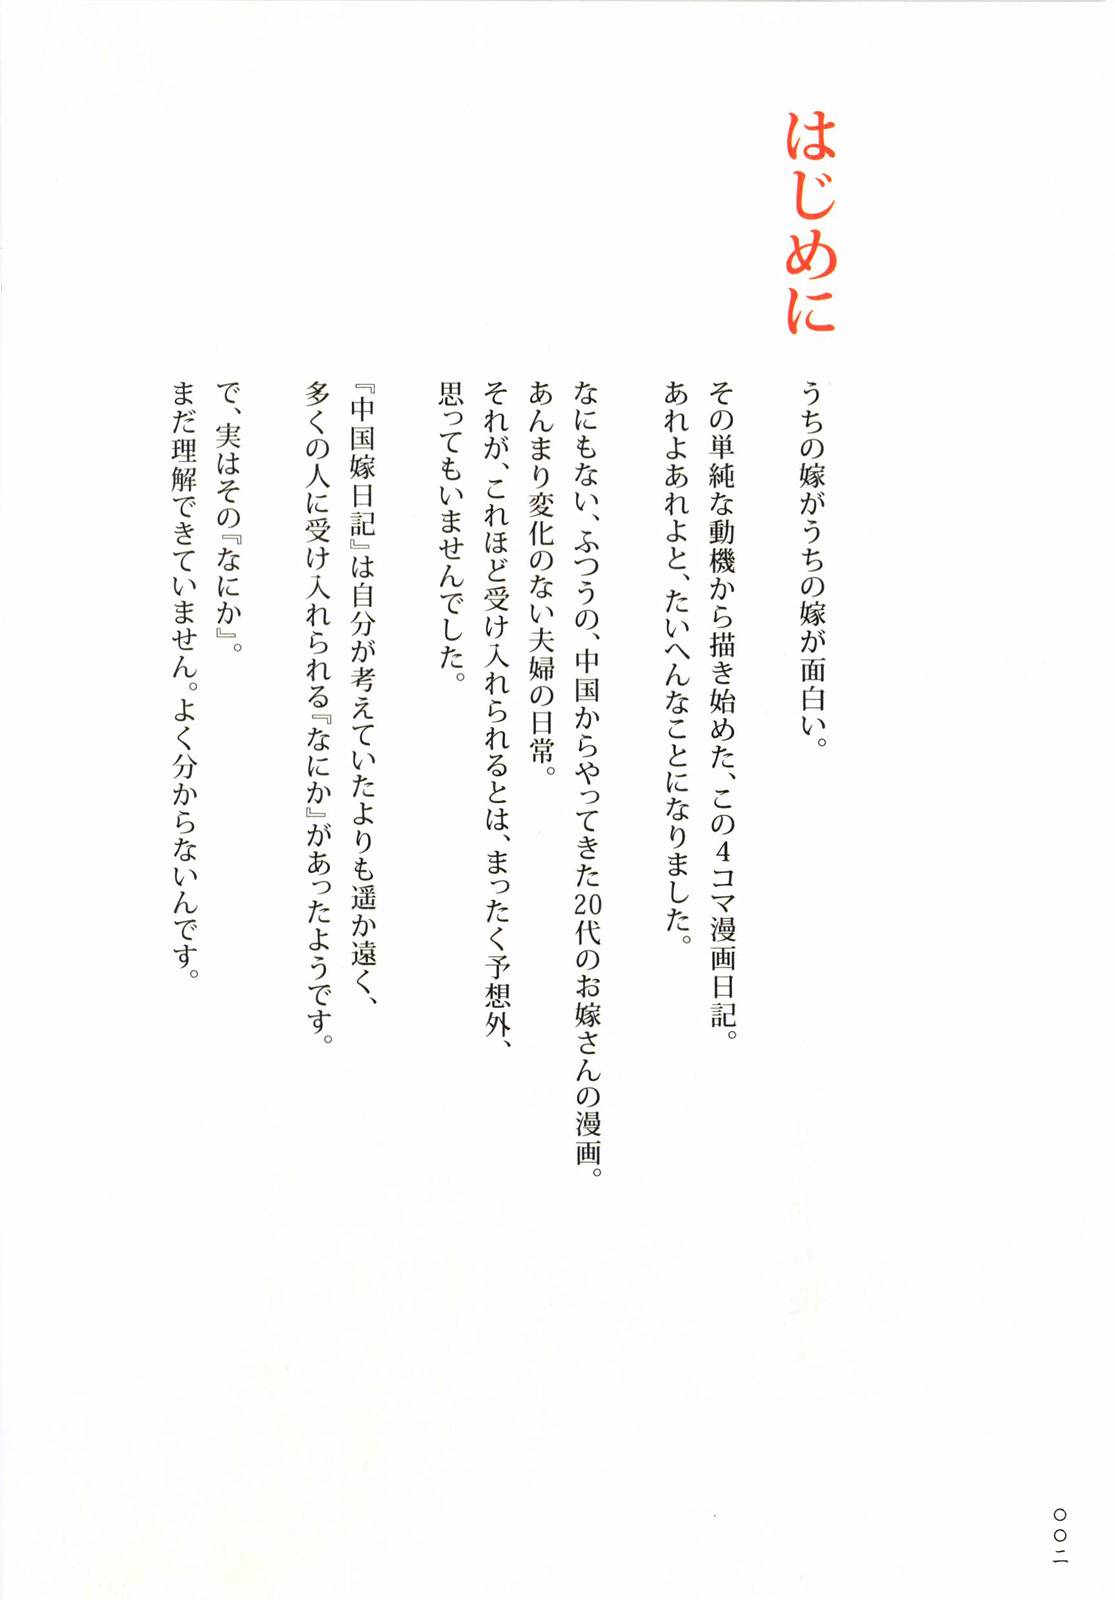 はじめに
うちの嫁がうちの嫁が面白い。
その単純な動機から描き始めた、この4コマ漫画日記。
あれよあれよと、たいへんなことになりました。
なにもない、ふつうの、中国からやってきた20代のお嫁さんの漫画。
あんまり変化のない夫婦の日常。
それが、これほど受け入れられるとは、まったく予想外、
思ってもいませんでした。
『中国嫁日記』は自分が考えていたよりも遥か遠く、
多くの人に受け入れられる『なにか』があったようです。
で、実はその『なにか』。
まだ理解できていません。よく分からないんです。
〇〇二